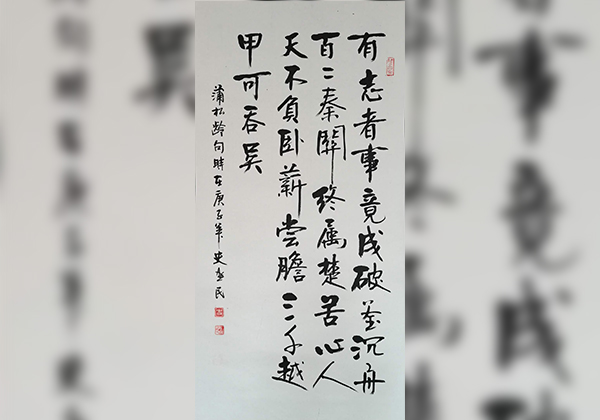 有志者事竟成破釜沉舟
百二秦關终属楚苦心人
天不負卧薪尝膽三千越
甲可吞吴
蒲松龄句時在庚子年史民